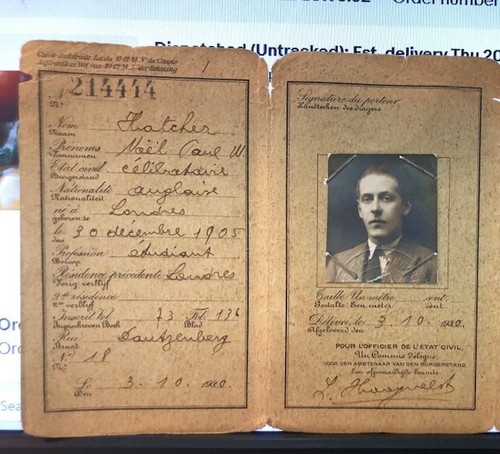 Order number
Dispatched (Untracked): Est. delivery Thu 20
Nº 214444
Nr
Nom Thatcher
Naam
Prénoms Noël Paul W
Voornamen
Etat civil célibataire
Burgerstand
Nationalité anglaise
Nationaliteit
né à Londres
geboren te
le 30 décembre 1905
den
Profession étudiant
Beroep
Résidence précédente Londres
Vorig verblijf
2de résidence
2de verblijf
Inscrit Vol. 73 Fol. 176
Ingeschreven Boek Blad
Rue Dautzenberg
Straat
Nº 18
Nr
Le 3. 10. 1920.
Den
Signature du porteur
Handteeken des dragers
Taille Un mètre cent.
Gestalte Een meter cent.
Délivrée le 3. 10. 1920.
Afgeleverd den
POUR L'OFFICIER DE L'ETAT CIVIL,
Un Commis délégué,
VOOR DEN AMBTENAAR VAN DEN BURGERSTAND
Een afgevaardigde beambte
Ord
Orde
Sea